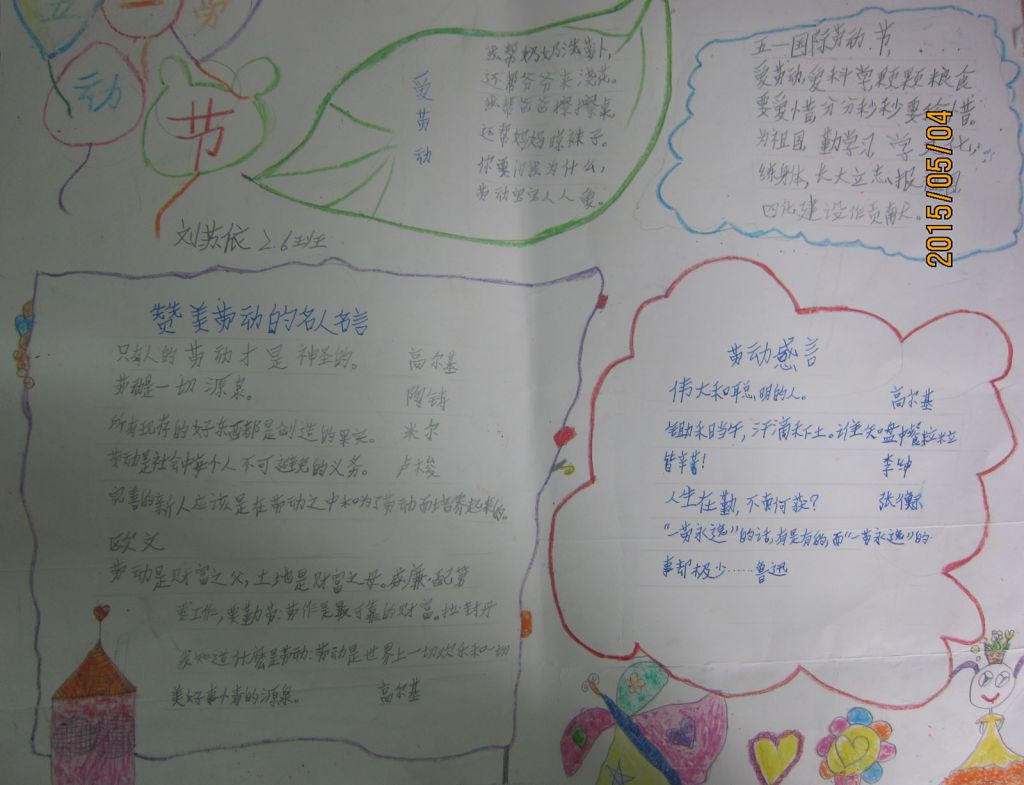 五一劳
动节
爱劳动
我帮奶奶洗萝卜,
还帮爷爷来浇花。
我帮爸爸擦擦桌
还帮妈妈晾袜子。
你要问我为什么,
劳动宝宝人人爱。
五一国际劳动节
爱劳动,爱科学颗颗粮食
要爱惜分分秒秒要珍惜。
为祖国勤学习 学
练身体,长大立志报
四化建设作贡献。
2015/05/04
刘苏依 2.6班
赞美劳动的名人名言
只有人的劳动才是神圣的。 高尔基
劳动是一切源泉。 陶铸
所有现存的好东西都是创造的果实。 米尔
劳动是社会中每个人不可避免的义务。 卢梭
完善的新人应该是在劳动之中和为了劳动而培养起来的。
欧文
劳动是财富之父,土地是财富之母。威廉·配第
要工作,要勤劳:劳作是最可靠的财富。拉·封丹
我知道什么是劳动:劳动是世界上一切欢乐和一切
美好事情的源泉。 高尔基
劳动感言
伟大和聪明的人。 高尔基
锄禾日当午,汗滴禾下土。谁知盘中餐粒粒
皆辛苦! 李绅
人生在勤,不索何获? 张衡
“一劳永逸”的话,有是有的,而“一劳永逸”的
事却极少……鲁迅